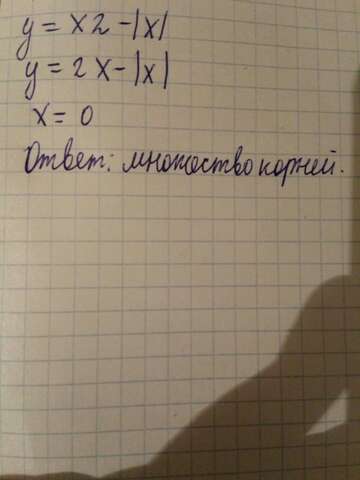 y = x2 - |x|
y = 2x - |x|
x = 0
Ответ: множество корней.